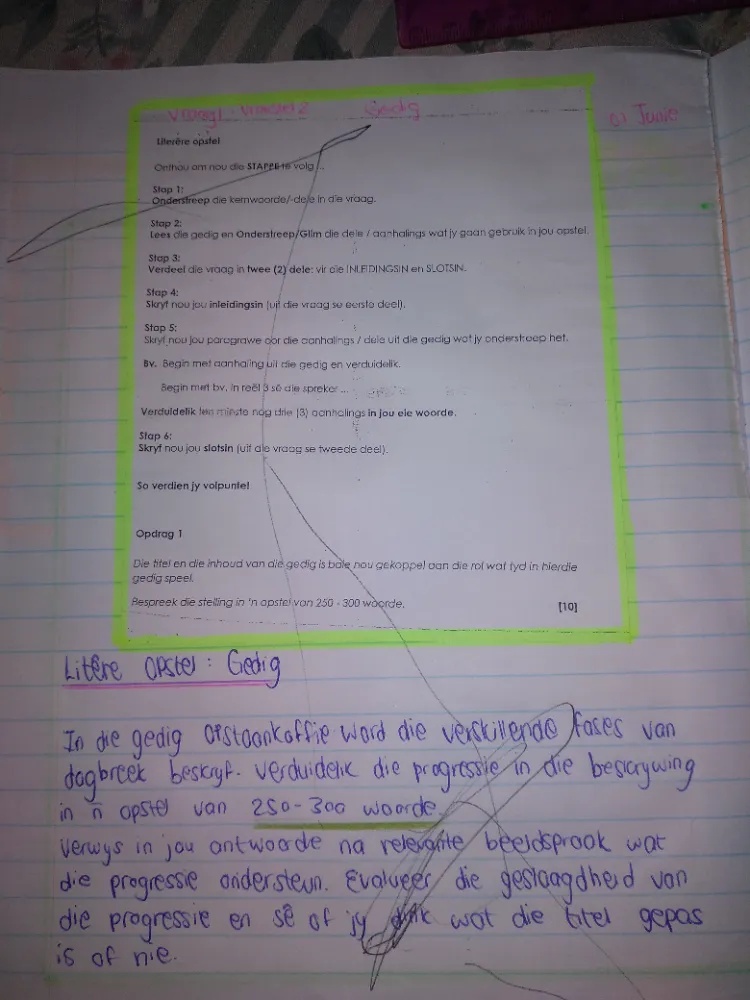 Vraag 1 Gedig 01 Junie
Literêre opstel
Onthou om nou die STAPPE te volg ...
Stap 1:
Onderstreep die kernwoorde/-dele in die vraag.
Stap 2:
Lees die gedig en Onderstreep/Glim die dele / aanhalings wat jy gaan gebruik in jou opstel.
Stap 3:
Verdeel die vraag in twee (2) dele: vir die INLEIDINGSIN en SLOTSIN.
Stap 4:
Skryf nou jou inleidingsin (uit die vraag se eerste deel).
Stap 5:
Skryf nou jou paragrawe oor die aanhalings / dele uit die gedig wat jy onderstreep het.
Bv. Begin met aanhaling uit die gedig en verduidelik.
Begin met bv. in reël 3 sê die spreker ...
Verduidelik ten minste nog drie (3) aanhalings in jou eie woorde.
Stap 6:
Skryf nou jou slotsin (uit die vraag se tweede deel).
So verdien jy volpunte!
Opdrag 1
Die titel en die inhoud van die gedig is baie nou gekoppel aan die rol wat tyd in hierdie
gedig speel.
Bespreek die stelling in 'n opstel van 250 - 300 woorde.
[10]
Litêre opstel : Gedig
In die gedig Opstaankoffie word die verskillende fases van
dagbreek beskryf. Verduidelik die progressie in die beskrywing
in 'n opstel van 250-300 woorde
Verwys in jou antwoorde na relevante beeldspraak wat
die progressie ondersteun. Evalueer die geslaagdheid van
die progressie en sê of jy dink wat die titel gepas
is of nie.